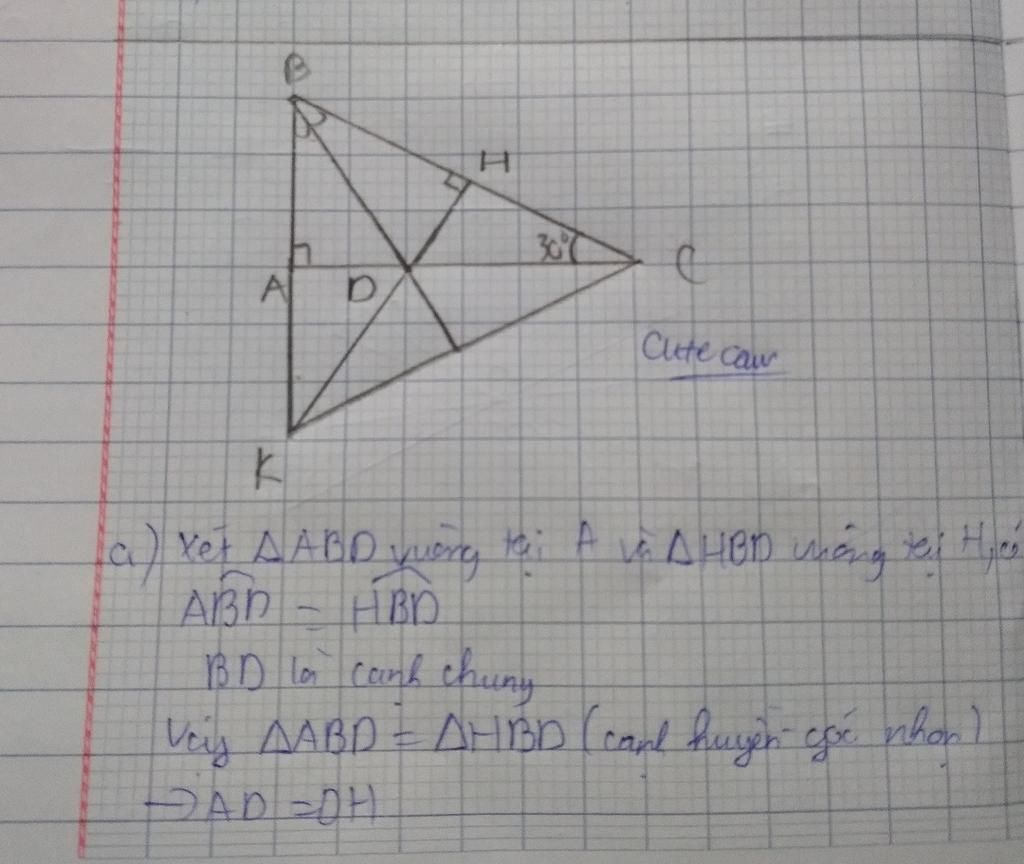 B
H
30°
C
A
D
Cute caw
K
a) Xét ΔABD vuông tại A và ΔHBD vuông tại H, có
ABD = HBD
BD là cạnh chung
Vậy ΔABD = ΔHBD (cạnh huyền - góc nhọn)
→ AD = DH